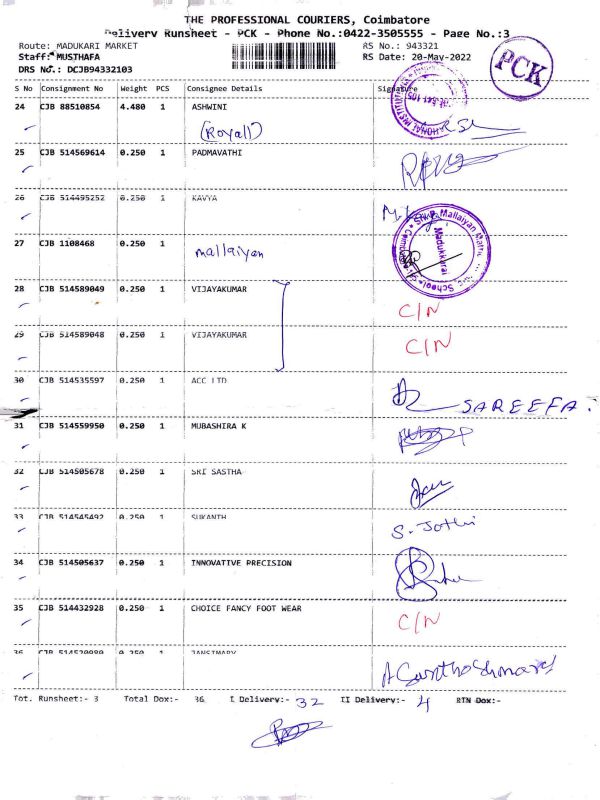 THE PROFESSIONAL COURIERS, Coimbatore
Delivery Runsheet - PCK - Phone No.:0422-3505555 - Page No.:3
Route: MADUKARI MARKET RS No.: 943321
Staff: MUSTHAFA RS Date: 20-May-2022
DRS No.: DCJB94332103
PCK
S No Consignment No Weight PCS Consignee Details Signature
24 CJB 88510854 4.480 1 ASHWINI
(Royall)
25 CJB 514569614 0.250 1 PADMAVATHI
26 CJB 514495252 0.250 1 KAVYA
27 CJB 1108468 0.250 1
mallaiyan
Mallaiyan Matric School
Madukkarai
28 CJB 514589049 0.250 1 VIJAYAKUMAR C/N
29 CJB 514589048 0.250 1 VIJAYAKUMAR C/N
30 CJB 514535597 0.250 1 ACC LTD SAREEFA.
31 CJB 514559950 0.250 1 MUBASHIRA K
32 CJB 514505678 0.250 1 SRI SASTHA
33 CJB 514545492 0.250 1 SUKANTH S. Jothi
34 CJB 514505637 0.250 1 INNOVATIVE PRECISION
35 CJB 514432928 0.250 1 CHOICE FANCY FOOT WEAR C/N
36 CJB 514520989 0.250 1 JANSIMARY
Tot. Runsheet:- 3 Total Dox:- 36 I Delivery:- 32 II Delivery:- 4 RTN Dox:-